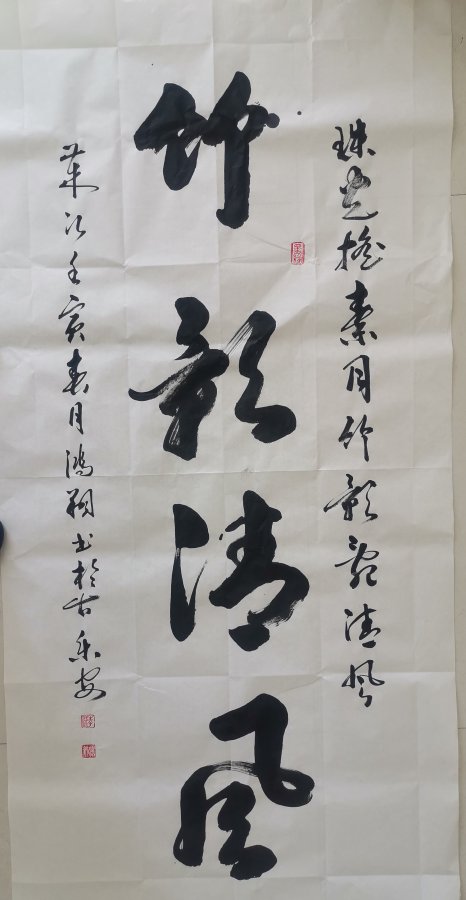 珠光摇素月竹影清风
竹影清风
岁次壬寅春月鸿翔书於古乐安